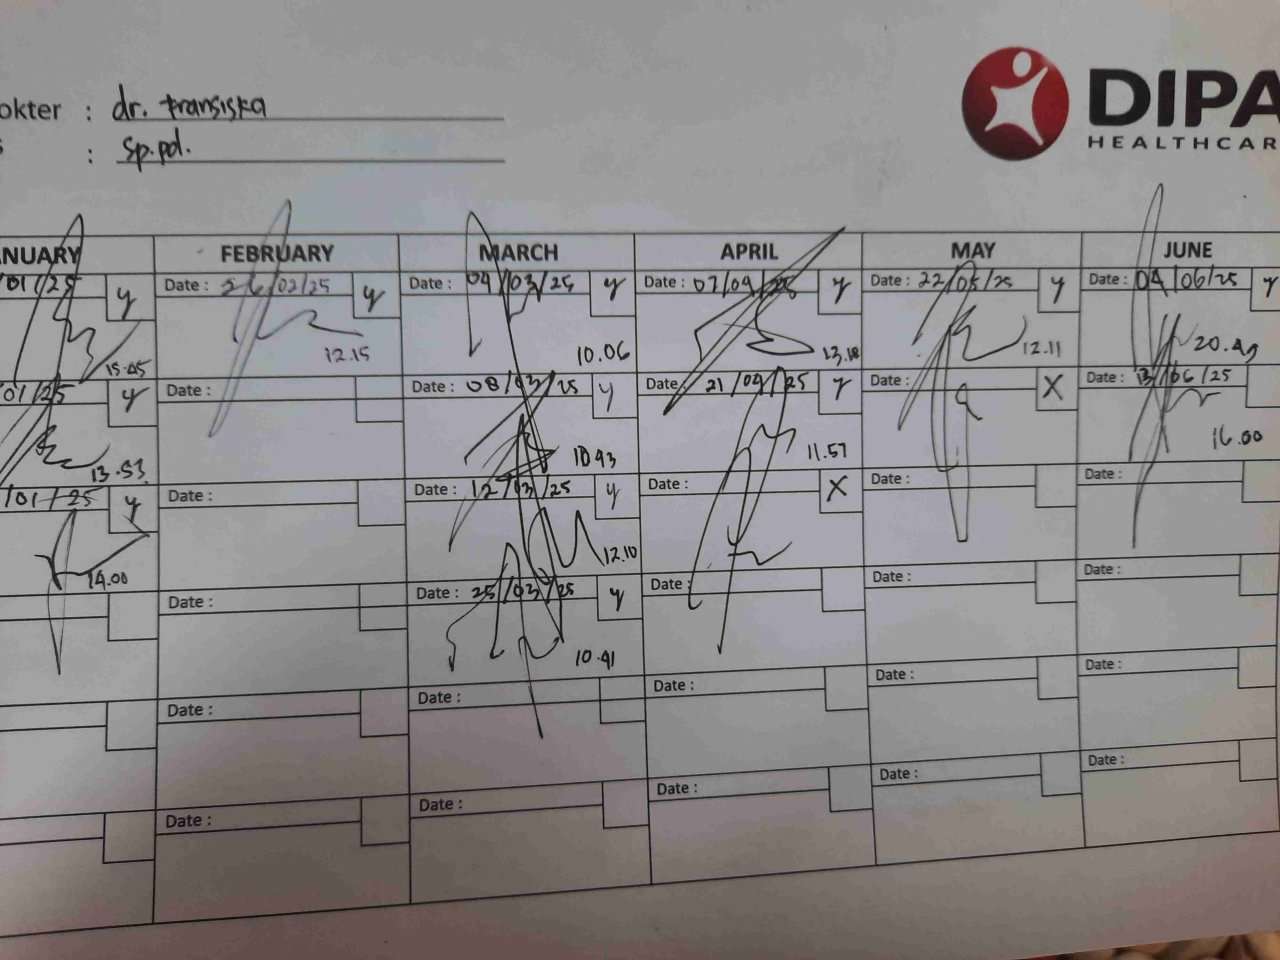 okter : dr. fransiska
s : Sp.pd.
DIPA
HEALTHCAR
NUARY FEBRUARY MARCH APRIL MAY JUNE
/01/25 y Date : 26/02/25 y Date : 04/03/25 y Date : 07/04/25 y Date : 22/05/25 y Date : 04/06/25 y
15.45 12.15 10.06 13.18 12.11 20.49
/01/25 y Date : Date : 08/03/25 y Date : 21/04/25 y Date : X Date : 13/06/25
13.53 10.43 11.57 16.00
/01/25 y Date : Date : 12/03/25 y Date : X Date : Date :
14.00 12.10
Date : Date : 25/03/25 y Date : Date : Date :
10.41
Date : Date : Date : Date : Date :
Date : Date : Date : Date : Date :